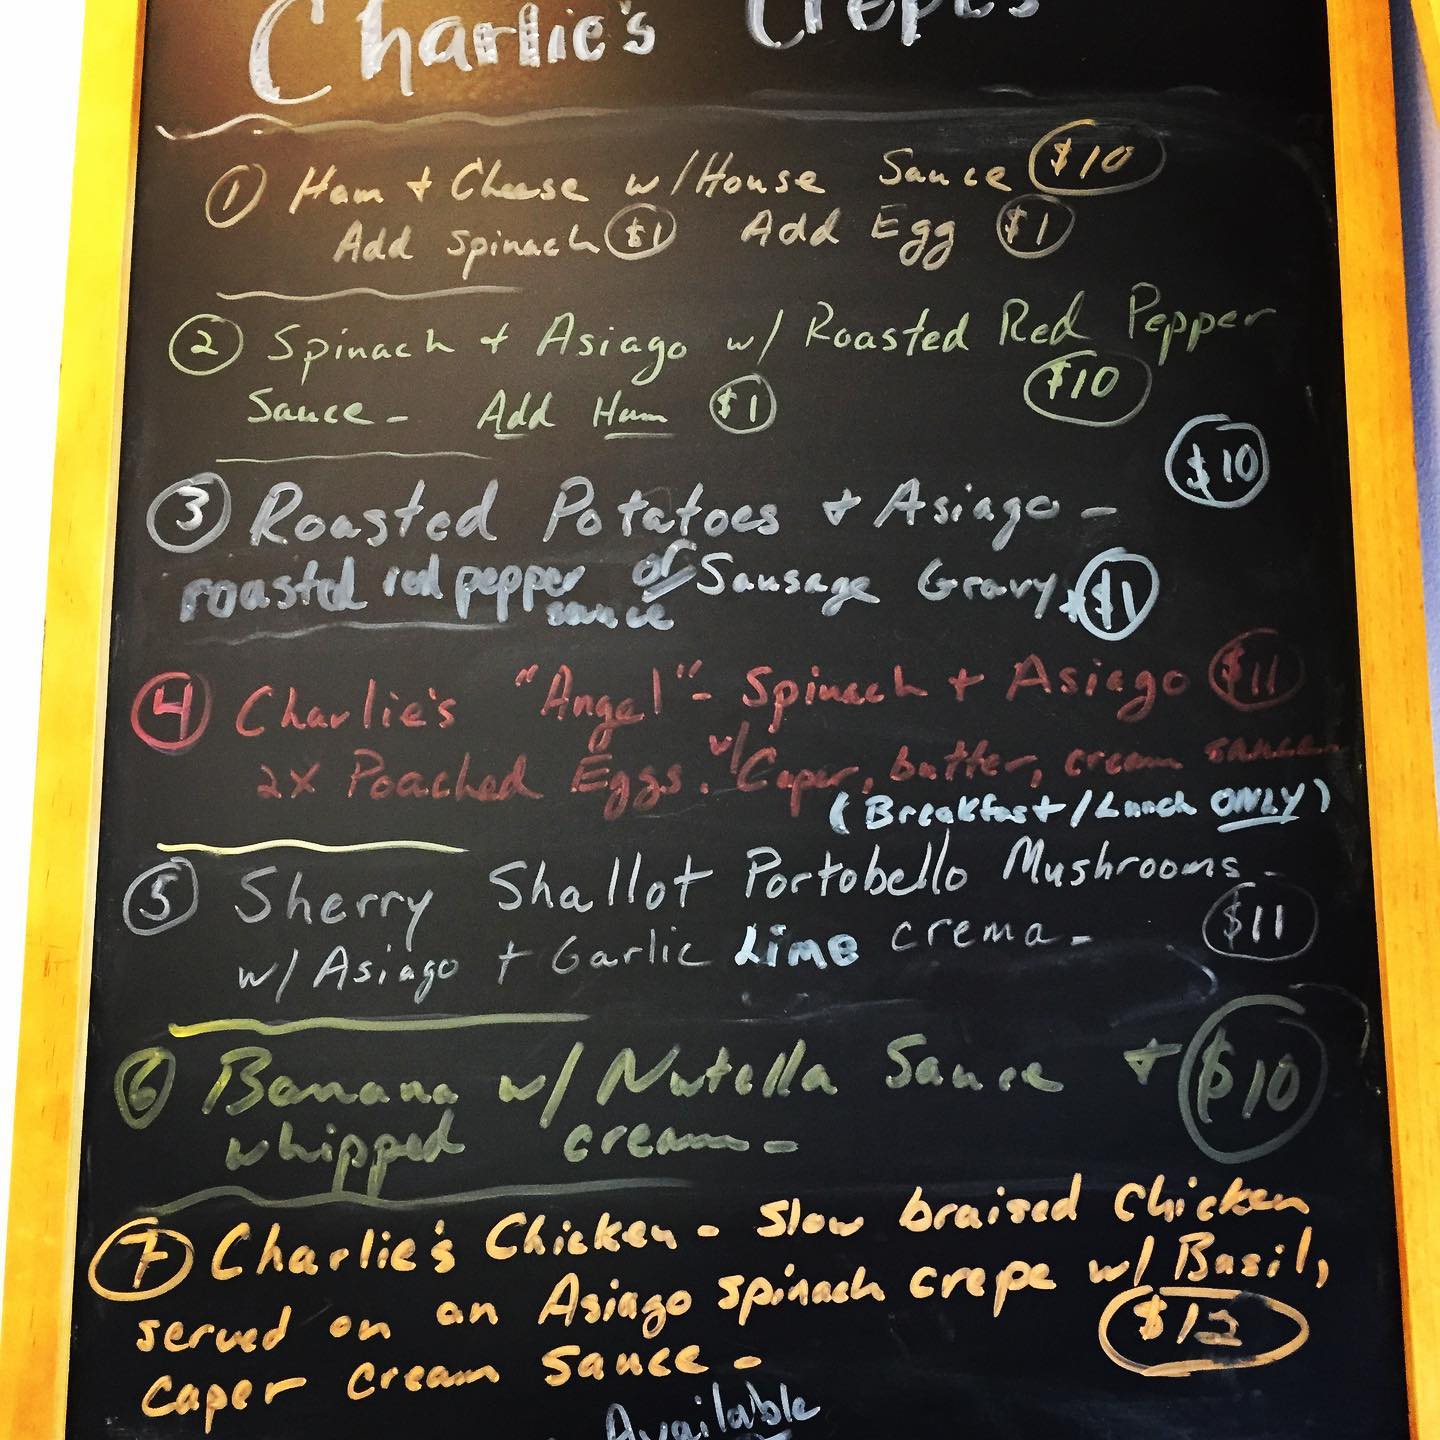 Charlie's Crepes
① Ham + Cheese w/House Sauce $10
Add spinach $1 Add Egg $1
② Spinach + Asiago w/ Roasted Red Pepper
Sauce - Add Ham $1 $10
③ Roasted Potatoes + Asiago - $10
roasted red pepper sauce or Sausage Gravy + $1
④ Charlie's "Angel" - Spinach + Asiago $11
2x Poached Eggs. w/ Caper, butter, cream sauce
(Breakfast/Lunch ONLY)
⑤ Sherry Shallot Portobello Mushrooms -
w/ Asiago + Garlic Lime crema - $11
⑥ Banana w/ Nutella Sauce + $10
whipped cream -
⑦ Charlie's Chicken - Slow braised Chicken
served on an Asiago spinach crepe w/ Basil,
caper cream sauce - $12
Available